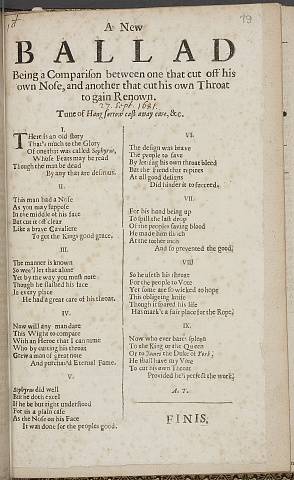 A New
BALLAD
Being a Comparison between one that cut off his
own Nose, and another that cut his own Throat
to gain Renown.
27. Sept. 1681.
Tune of Hang sorrow cast away care, &c.
I.
THere is an old story
That's much to the Glory
Of one that was called Sophyrus,
Whose Feats may be read
Though the man be dead
By any that are desirous.
II.
This man had a Nose
As you may suppose
In the middle of his face
But cut it off clear
Like a brave Cavaliere
To get the Kings good grace.
III.
The manner is known
So wee'l let that alone
Yet by the way you must note
Though he slashed his face
In every place
He had a great care of his throat.
IV.
Now will any man dare
This Wight to compare
With an Heroe that I can name
Who by cutting his throat
Grew a man of great note
And purchas'd Eternal Fame.
V.
Sophyrus did well
But he doth excel
If he be but right understood
For tis a plain case
As the Nose on his Face
It was done for the peoples good.
VI.
The design was brave
The people to save
By letting his own throat bleed
But the Fiend that repines
At all good designs
Did hinder it to succeed.
VII.
For his hand being up
To spill the last drop
Of the peoples saving blood
He made him flinch
At the tother inch
And so prevented the good.
VIII
So he useth his throat
For the people to Vote
Yet some are so wicked to hope
This obliging knife
Though it spared his life
Has mark't a fair place for the Rope.
IX.
Now who ever bares spleen
To the King or the Queen
Or to James the Duke of York,
He shall have my Vote
To cut his own Throat
Provided he'l perfect the work.
A. T.
FINIS.